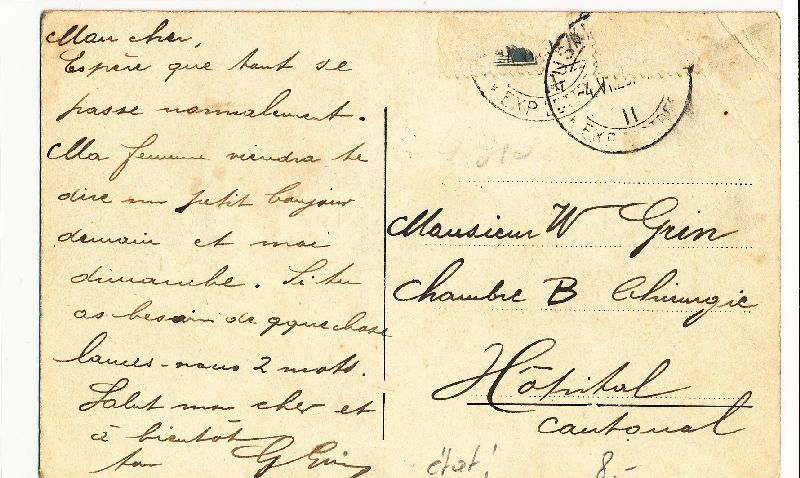 Mon cher,
Espère que tout se
passe normalement.
Ma femme viendra te
dire un petit bonjour
demain et moi
dimanche. Si tu
as besoin de qque chose
lances-nous 2 mots.
Salut mon cher et
à bientôt
ton G Grin
EXP
EXP
II
Monsieur W Grin
Chambre B Chirurgie
Hôpital
cantonal
état! 8.-